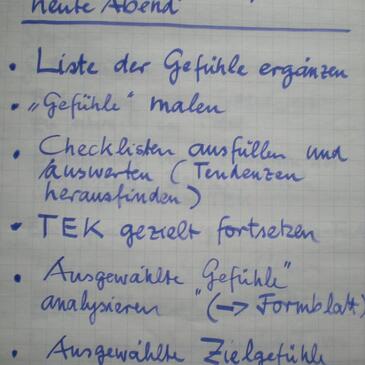 heute Abend
• Liste der Gefühle ergänzen
• „Gefühle" malen
• Checklisten ausfüllen und
auswerten (Tendenzen
herausfinden)
• TEK gezielt fortsetzen
• Ausgewählte „Gefühle"
analysieren (→ Formblatt)
• Ausgewählte Zielgefühle